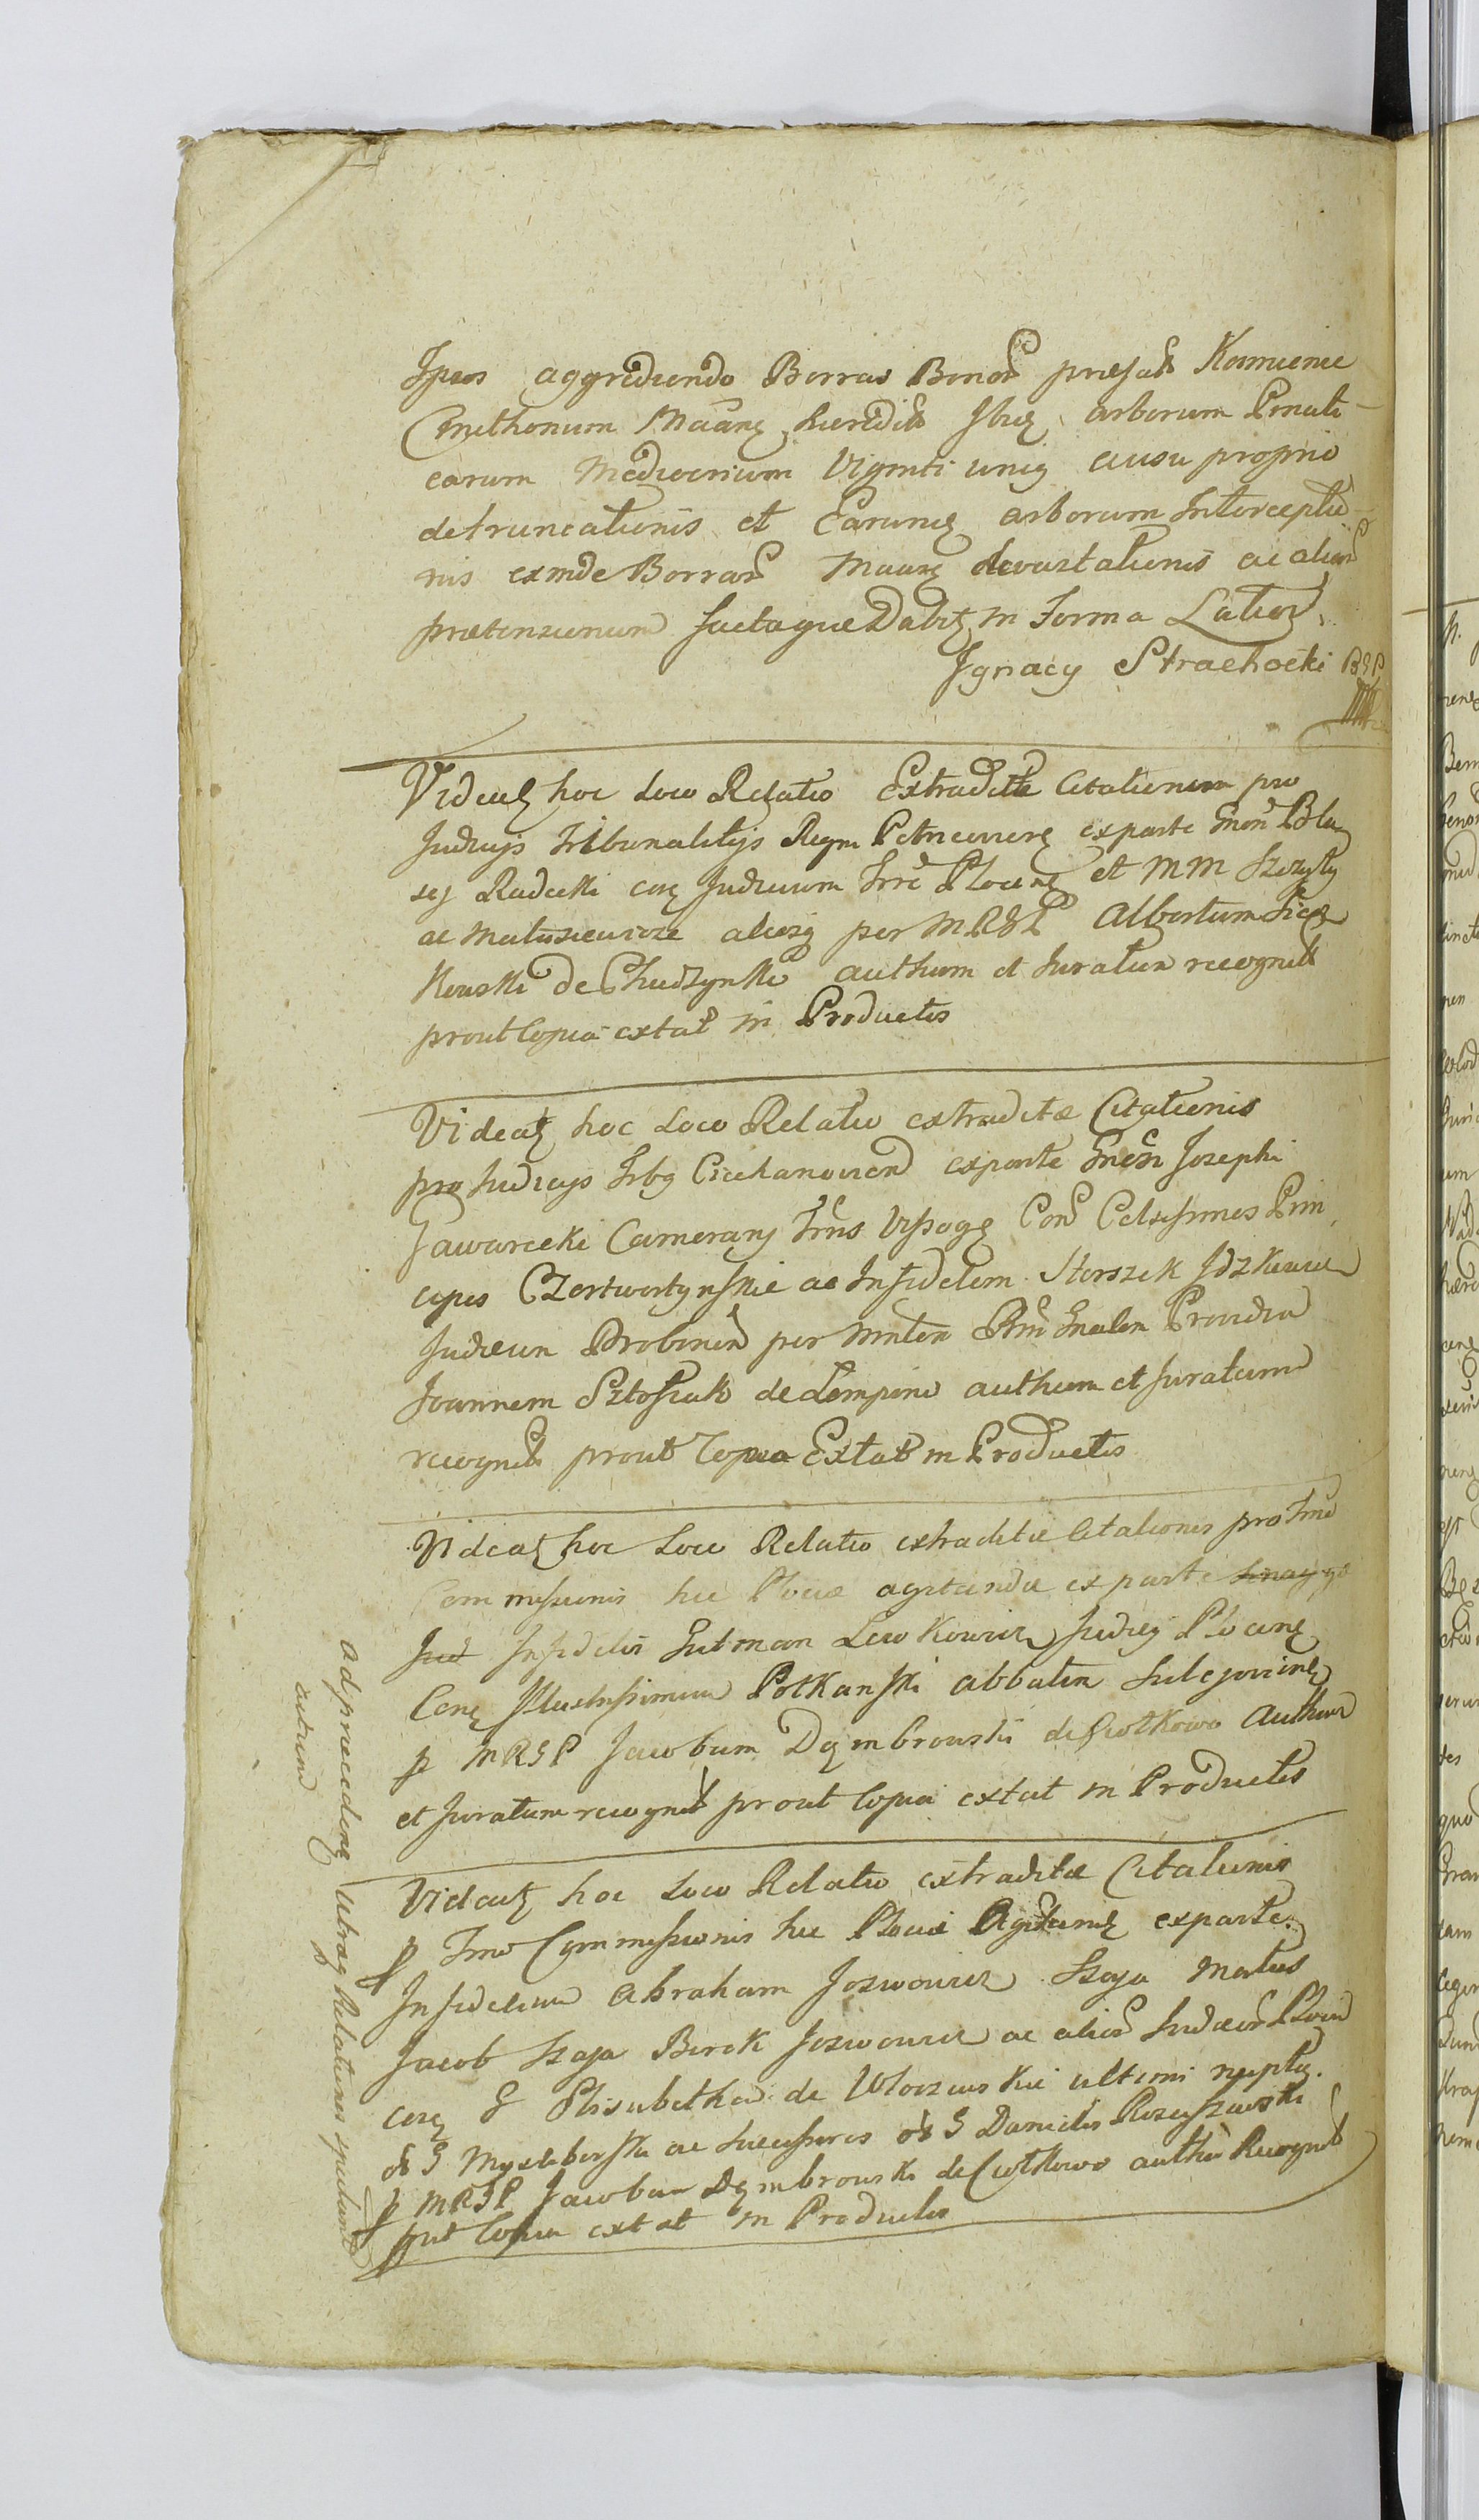 Ipsos aggrediendo Borras Bonor prefat Kamienie
Cmethonum Maãnq heredit Ibiq arborum Pmati
earum mediocrium Viginti uniq ausu proprio
detruncationis et Earumq arborum Interceptio
nis exinde Borrar devastationis ac alior
pretensionum factaque Dabitz in Forma Lator
Ignacy Strachocki RGP
Videatz hoc Loco Relatio Extradite Citationum pro
Judicijs Tribunalitijs Regni Petricoviens exparte Gnosi Bla
sij Radecki coq Judicium Trre Plocens et MM Szczyty
ac Matusiewicze aliosq per MRGP Albertum
de Chudzynko authum et Juratum recognit
prout Copia extat in Productis
Videatz hoc Loco Relatio extraditæ Citationis
pro Judicijs Ciechanovien exparte Gnosi Josephi
Jaworecki Camerarij Trris Vyssoge Con Celsissimos Prin
cipes Czertwertynskie ac Infidelem Herszek Idzkowicz
Judæum Drobinen per Mntem Rni Gnalen Providu
Joannem Sztosiak de Lempino authum et Juratum
recognit prout Copia Extat in Productis
Videatz hoc Loco Relatio extraditæ Citationis pro Tmo
Commissionis hic Plociæ agitandæ ex parte
Jud Infidelis Gutman Lewkowicz Judæi Plocens
Conq Illustrissimum Potkanski abbatem Sulejoviens
p MRGP Jacobum Dembrowski de Ciotkowo Authum
et Juratum recognit prout Copia extat in Productis
Videatz hoc Loco Relatio extraditæ Citationis
p Tmo Commissionis hic Plociæ Agitand exparte
Infidelium Abraham Joswowicz Szaja Mortus
Jacob Szaja Berek Joswowicz ac alior Judæor Plocen
coq G Elisabetham de Wloczewskie ultimi nupta
ol G Mysliborska ac Successores ol G Danielis Rosciszewski
p MRGP Jacobum Dembrowski de Ciotkowo authu Recognit
prut Copia extat in Productis
ad præcedens Utraq Relationes spectant
actum